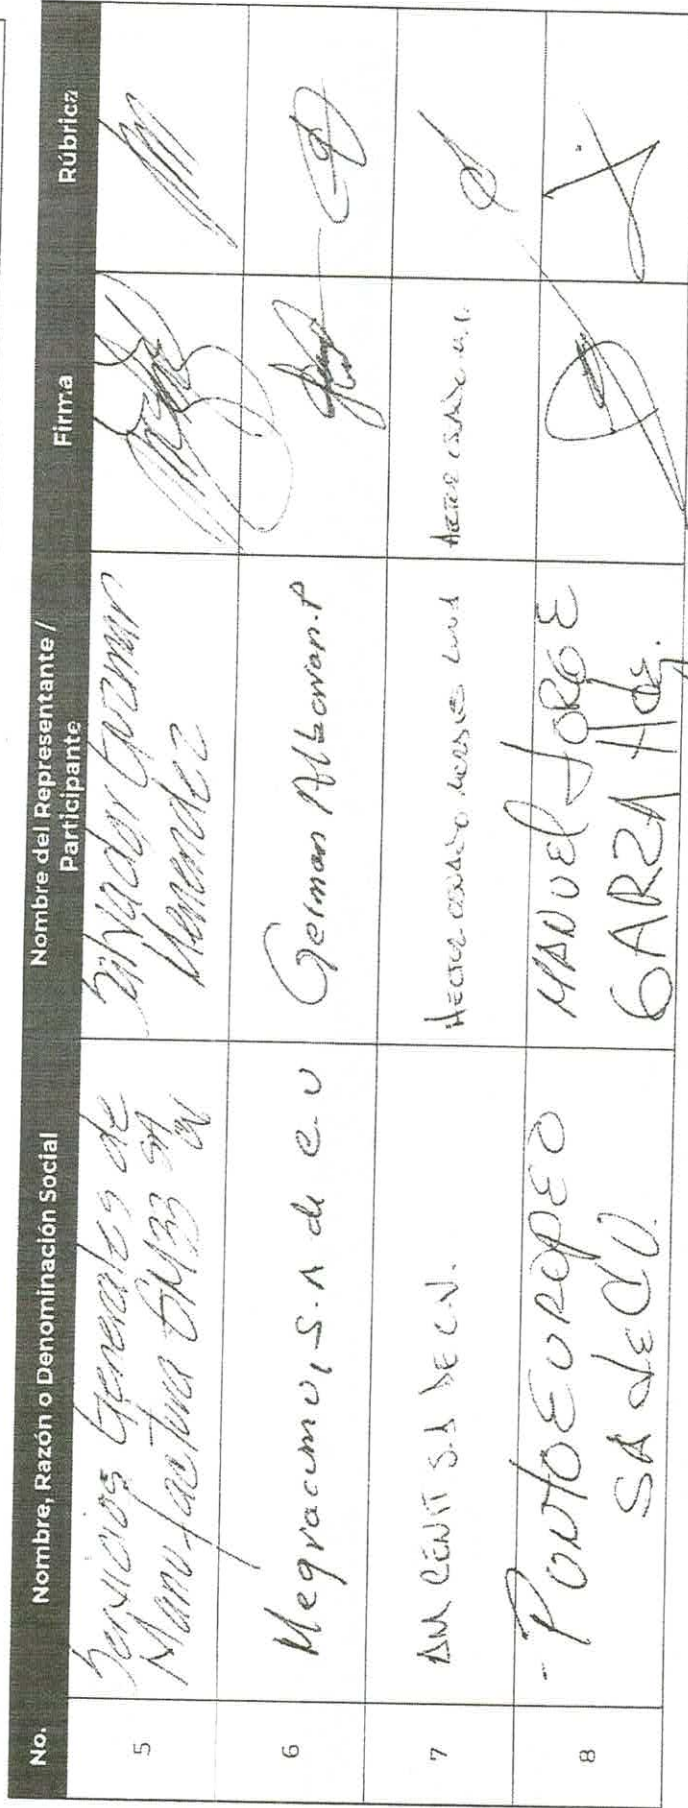 No.
Nombre, Razón o Denominación Social
Nombre del Representante /
Participante
Firma
Rúbrica
5
Servicios Generales de
Manufactura GM33 SA
CV
Salvador Guzman
Menendez
6
S.A de C V
German Albarran.P
7
AM CENIT S.A DE C.V.
HECTOR
8
-PUNTO EUROPEO
SA de CV.
MANUEL JORGE
GARZA Hdz.